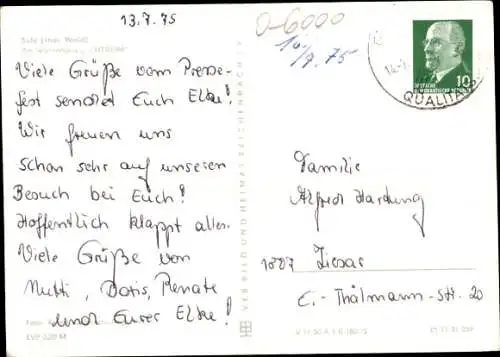 13.7.75
O-6000
10.
7. 75
Suhl (Thür. Wald)
"CENTRUM"
Viele Grüße vom Presse-
fest sendet Euch Elke!
Wir freuen uns
schon sehr auf unseren
Besuch bei Euch!
Hoffentlich klappt alles.
Viele Grüße von
Mutti, Doris, Renate
und Eurer Elke!
EVP 0,20 M
VEB BILD UND HEIMAT REICHENBACH
V 11 50 A 1
10
DEUTSCHE
DEMOKRATISCHE REPUBLIK
QUALITÄT
Familie
Alfred Hardung
1807 Ziesar
E.-Thälmann-Str. 20